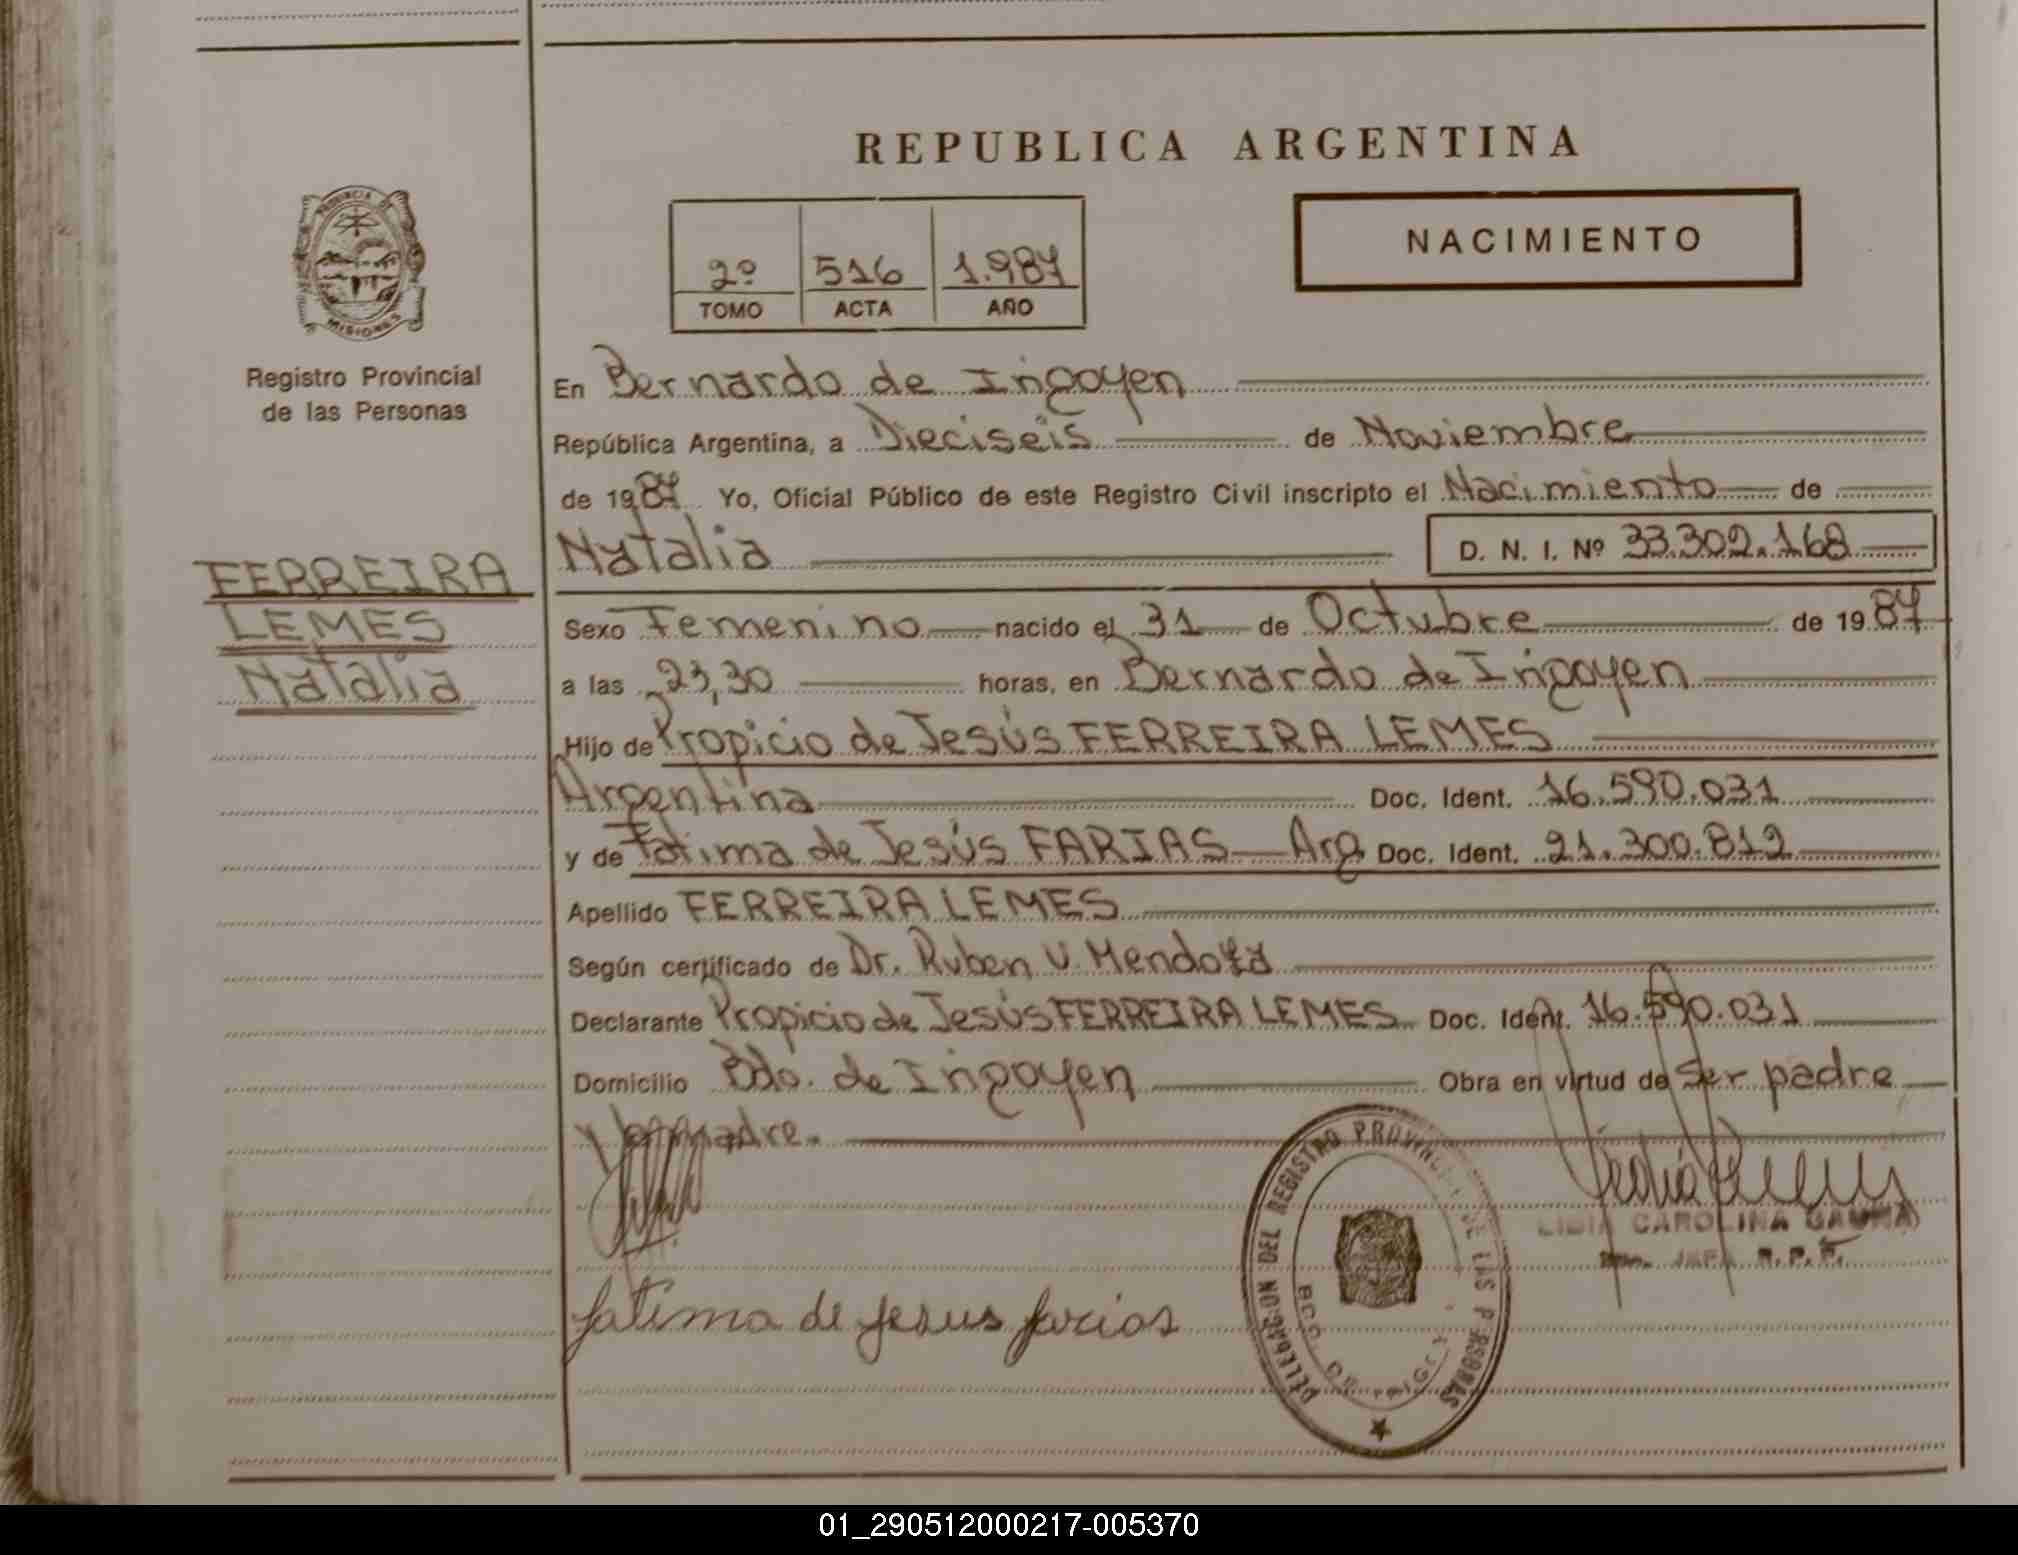 REPUBLICA ARGENTINA
NACIMIENTO
2º 516 1.987
TOMO ACTA AÑO
PROVINCIA DE
MISIONES
Registro Provincial
de las Personas
FERREIRA
LEMES
Natalia
En Bernardo de Irigoyen
República Argentina, a Dieciseis de Noviembre
de 1987 Yo, Oficial Público de este Registro Civil inscripto el Nacimiento de
Natalia D. N. I. Nº 33.302.168
Sexo Femenino nacido el 31 de Octubre de 1987
a las 23,30 horas, en Bernardo de Irigoyen
Hijo de Propicio de Jesús FERREIRA LEMES
Argentina Doc. Ident. 16.590.031
y de Fatima de Jesús FARIAS Arg Doc. Ident. 21.300.812
Apellido FERREIRA LEMES
Según certificado de Dr. Ruben V. Mendoza
Declarante Propicio de Jesús FERREIRA LEMES Doc. Ident. 16.590.031
Domicilio Bdo. de Irigoyen Obra en virtud de ser padre
y madre.
DELEGACION DEL REGISTRO PROVINCIAL DE LAS PERSONAS
LIDIA CAROLINA GAUNA
JEFA R. P. P.
fatima de jesus farias
01_290512000217-005370